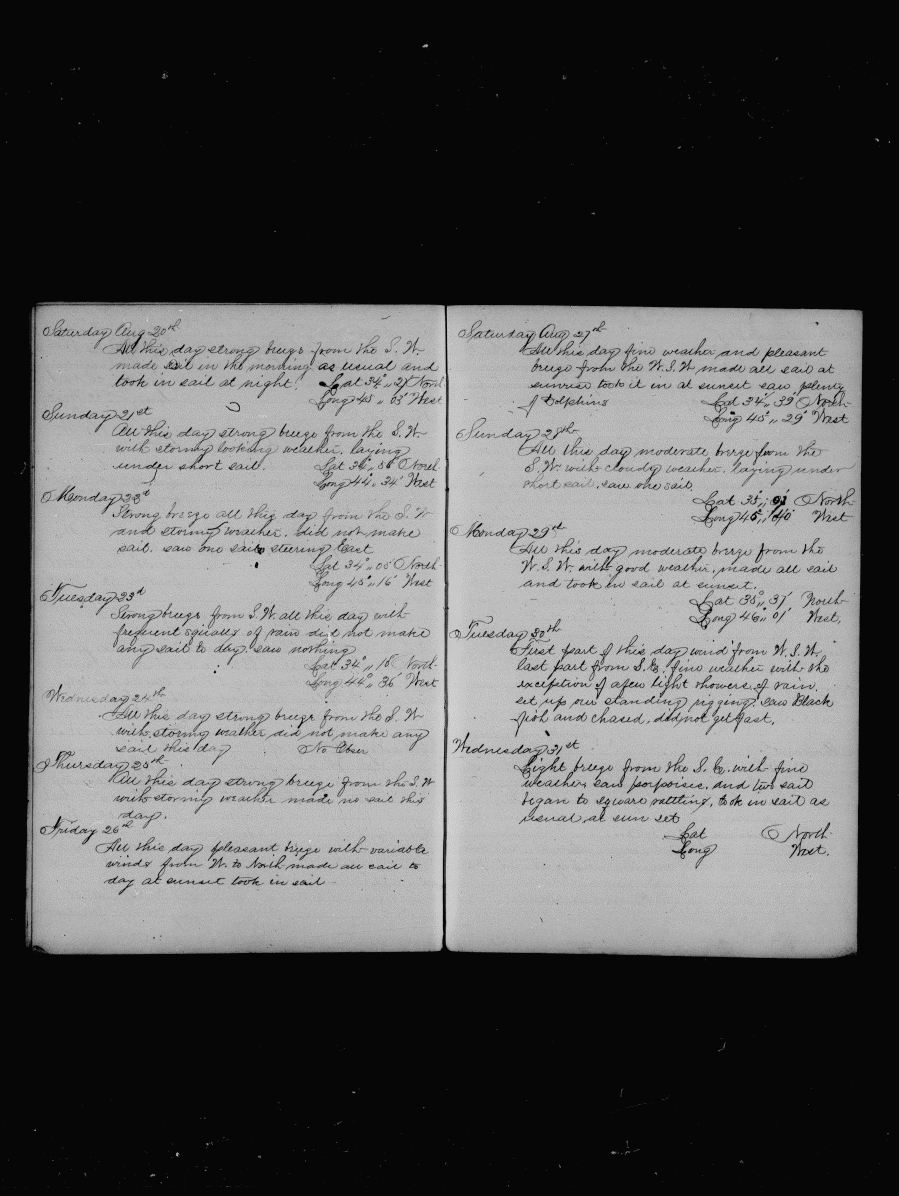 Saturday Aug 20th
All this day strong breeze from the S. W.
made sail in the morning as usual and
took in sail at night. Lat 34° 27' North
Long 45 " 03' West
Sunday 21st
All this day strong breeze from the S. W.
with stormy looking weather. laying
under short sail. Lat North
Long 44° " 34' West
Monday
Strong breeze all this day from the S. W
and stormy weather. did not make
sail. saw one sail steering East
Lat 34° " 05' North
Long 45° " 16' West
Tuesday 23d
Strong breeze from S. W. all this day with
frequent squalls of rain did not make
any sail to day. saw nothing
Lat 34° " 15' North
Long 44° " 36' West
Wednesday 24th
All this day strong breeze from the S. W
with stormy weather did not make any
sail this day No Obser
Thursday 25th
All this day strong breeze from the S. W
with stormy weather made no sail this
day.
Friday 26th
All this day pleasant breeze with variable
winds from W. to North made all sail to
day at sunset took in sail
Saturday Aug 27th
All this day fine weather and pleasant
breeze from the W. S. W made all sail at
sunrise took it in at sunset saw plenty
of Dolphins Lat 34° " 39' North
Long 45° " 29' West
Sunday 28th
All this day moderate breeze from the
S. W. with cloudy weather. laying under
short sail. saw one sail.
Lat 35° " North
Long 45° " 40' West
Monday 29th
All this day moderate breeze from the
W. S. W. with good weather, made all sail
and took in sail at sunset.
Lat 35° " 37' North
Long 46° " 01' West.
Tuesday 30th
First part of this day wind from W. S. W.
last part from S. E. fine weather with the
exception of a few light showers of rain.
set up our standing rigging. saw Black
fish and chased. did not get fast.
Wednesday 31st
Light breeze from the S. E. with fine
weather, saw porpoises. and two sail
began to square rattling, took in sail as
usual at sun set
Lat North
Long West.